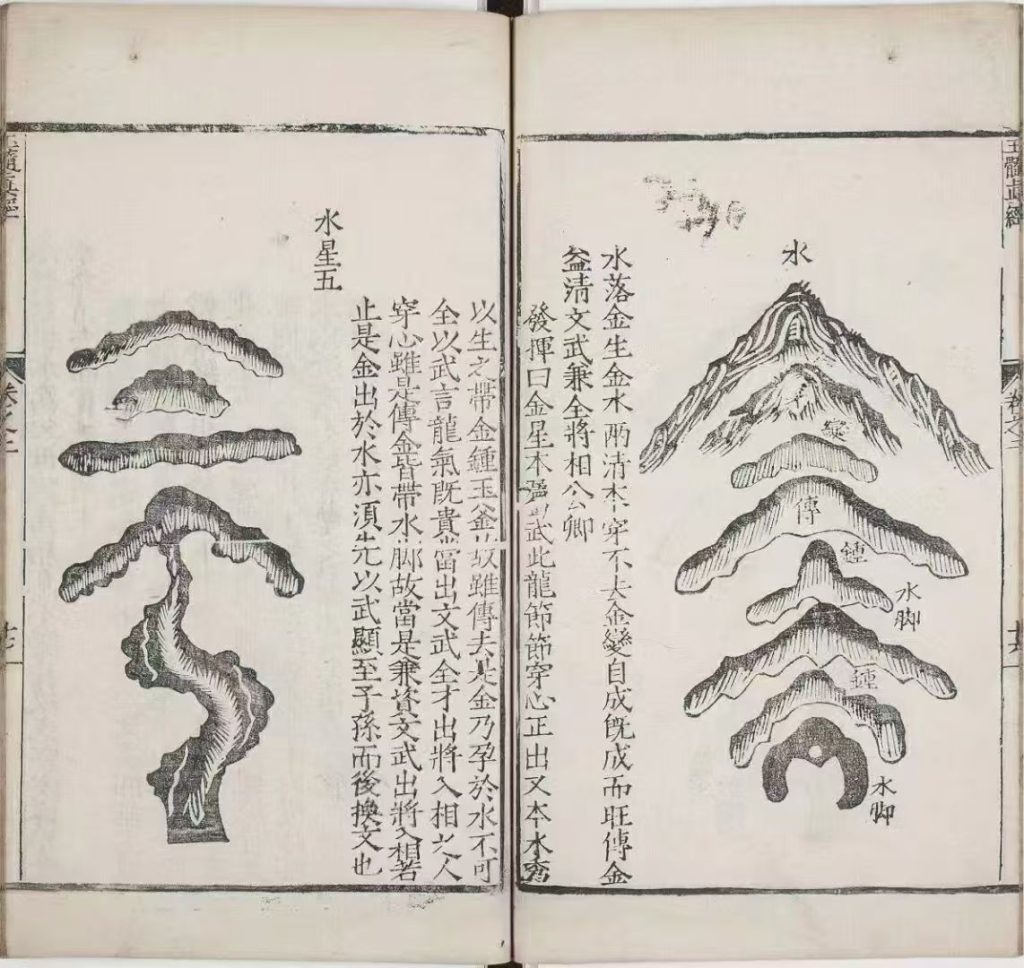 玉髓真經
卷之二
水
傳
鍾
水脚
鍾
水脚
水落金生金水兩清木穿不去金變自成旣成而旺傳金
益清文武兼全將相公卿
發揮曰金星本強武此龍節節穿心正出又本水秀
以生之帶金鍾玉釜故雖傳去是金乃孕於水不可
全以武言龍氣旣貴當出文武全才出將入相之人
穿心雖是傳金皆帶水脚故當是兼資文武出將入相若
止是金出於水亦須先以武顯至子孫而後換文也
水星五
玉髓真經